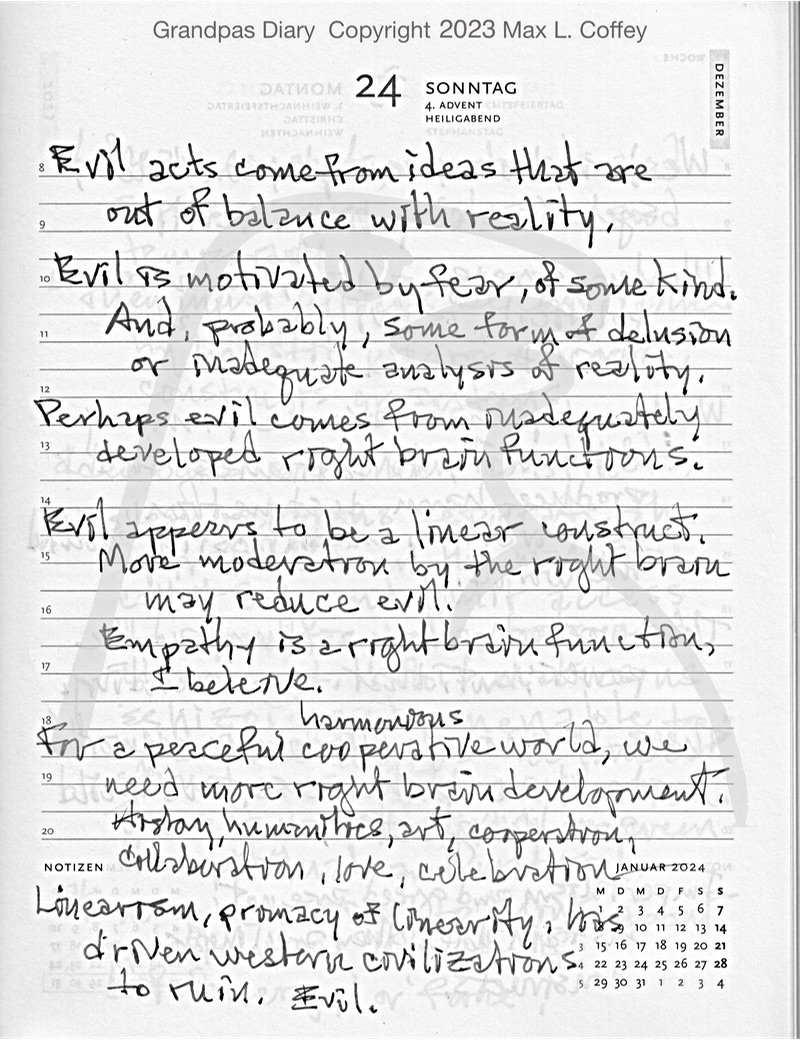 Grandpas Diary Copyright 2023 Max L. Coffey
24 SONNTAG
4. ADVENT
HEILIGABEND
DEZEMBER
8 Evil acts come from ideas that are
9 out of balance with reality.
10 Evil is motivated by fear, of some kind.
11 And, probably, some form of delusion
or inadequate analysis of reality.
12
Perhaps evil comes from inadequately
13 developed right brain functions.
14
Evil appears to be a linear construct.
15 More moderation by the right brain
16 may reduce evil.
Empathy is a right brain function,
17 I beleive.
18 harmonous
For a peaceful cooperative world, we
19 need more right brain development.
20 History, humanities, art, cooperation,
NOTIZEN Collaboration, love, celebration
Linearism, primacy of linearity, has
driven western civilizations
to ruin. Evil.
JANUAR 2024
M D M D F S S
1 2 3 4 5 6 7
9 10 11 12 13 14
3 15 16 17 18 19 20 21
4 22 23 24 25 26 27 28
5 29 30 31 1 2 3 4